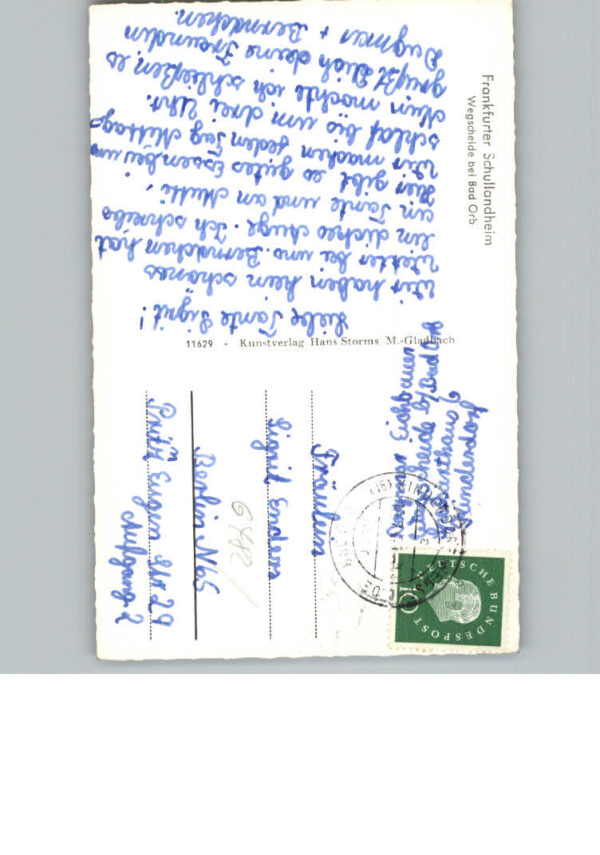 Frankfurter Schullandheim
Wegscheide bei Bad Orb
Liebe Tante Sigrit!
Wir haben kein schönes
Wetter bei uns. Bernachen hat
ein dickes Auge. Ich schreibs
an Tante und an Mutti,
Hier gibt es gutes Essen bei uns
Wir machen jeden Tag Mittag-
schlaf bis um drei Uhr.
Nun möchte ich schließen, es
grüßt Dich deine Freundin
Dagmar + Bernachen.
11629 - Kunstverlag Hans Storms M.-Gladbach
Fräulein
Sigrit Enders
Berlin N65
Prinz Eugen Str 29
Aufgang 2
6482/
DEUTSCHE BUNDESPOST
10